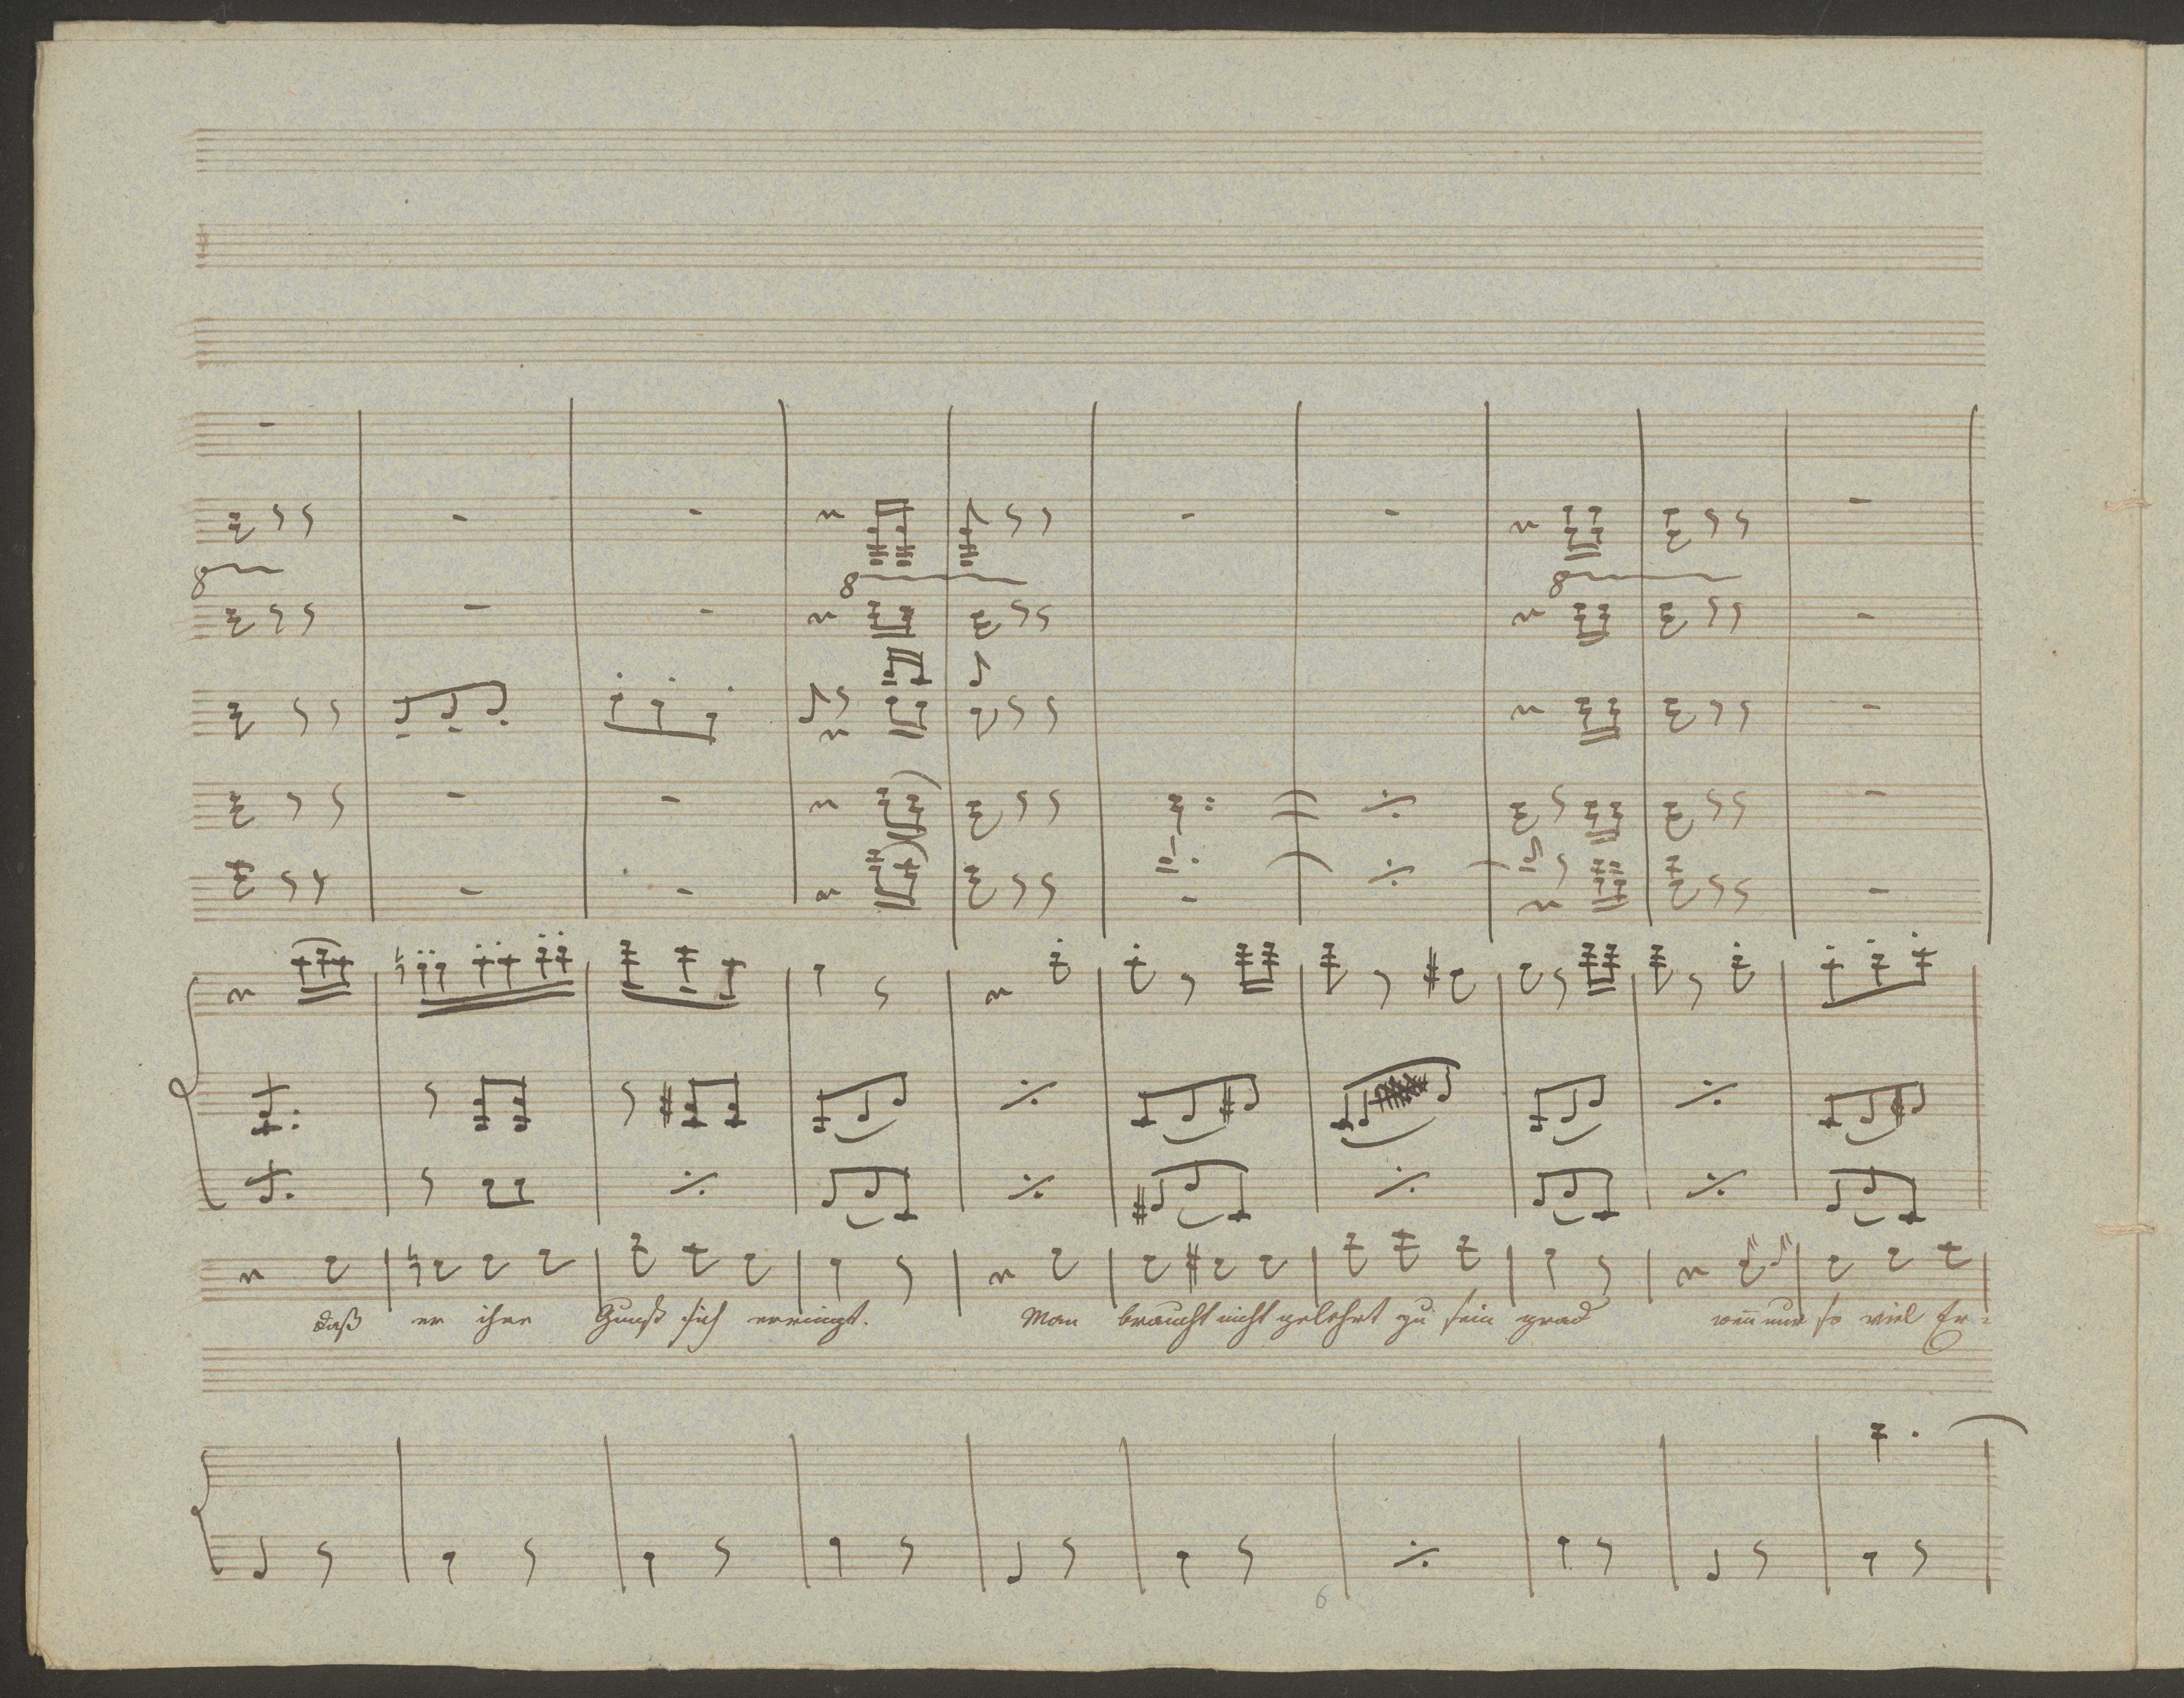 8
8
8
daß er ihre Gunst sich erringt. Man braucht nicht gelehrt zu sein grad wen̄ nur so viel Er-
6